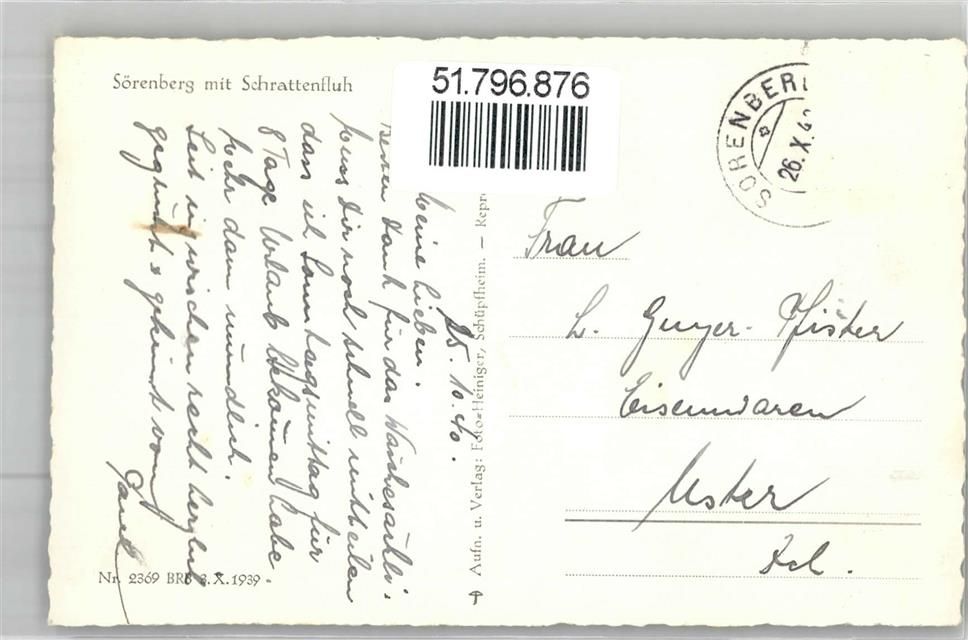 Sörenberg mit Schrattenfluh
51.796.876
SÖRENBERG
26. X. 40
25. 10. 40.
Meine Lieben.
Besten Dank für das Wäschesäckli.
Muss Dir noch schnell mittheilen
dass ich Sonntagsmittag für
8 Tage Urlaub bekommen habe
Mehr dann mündlich.
Seit inzwischen recht herzlich
gegrüsst & geküsst von
Paul
Frau
L. Guyer-Pfister
Eisenwaren
Uster
Zch.
Aufn. u. Verlag: Foto-Heiniger, Schüpfheim. — Repro
Nr. 2369 BRB 3. X. 1939